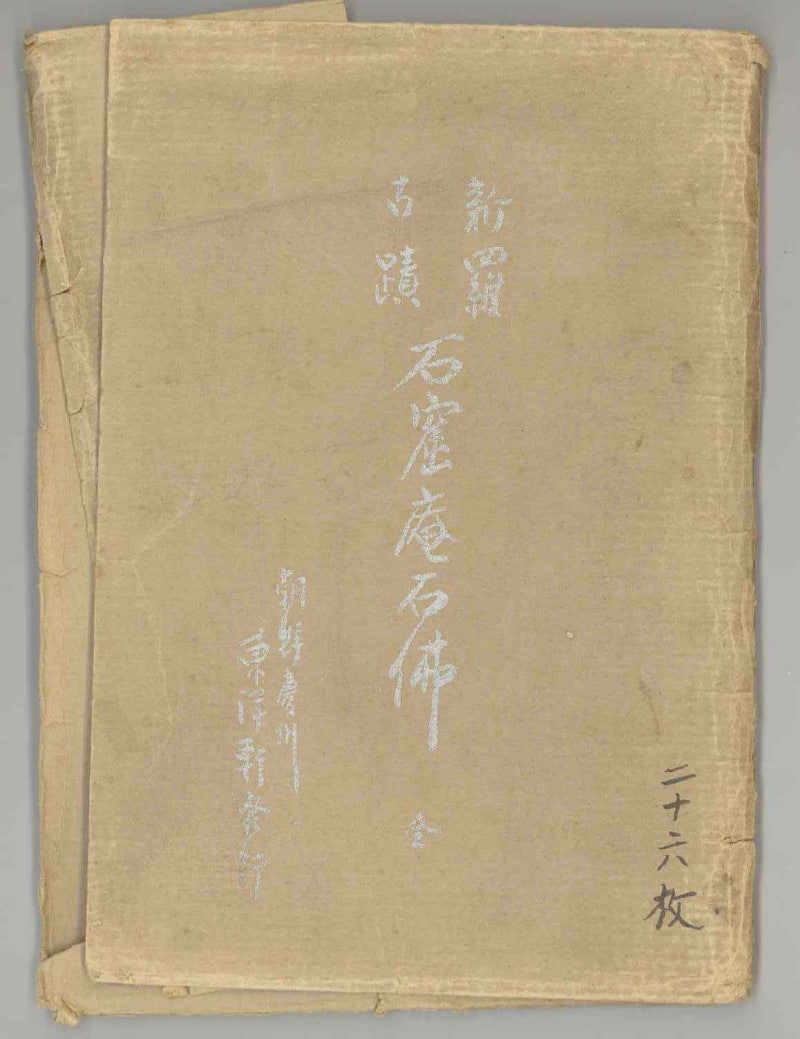 新羅
古蹟
石窟庵石佛 全
朝鮮慶州
東洋軒發行
二十六枚